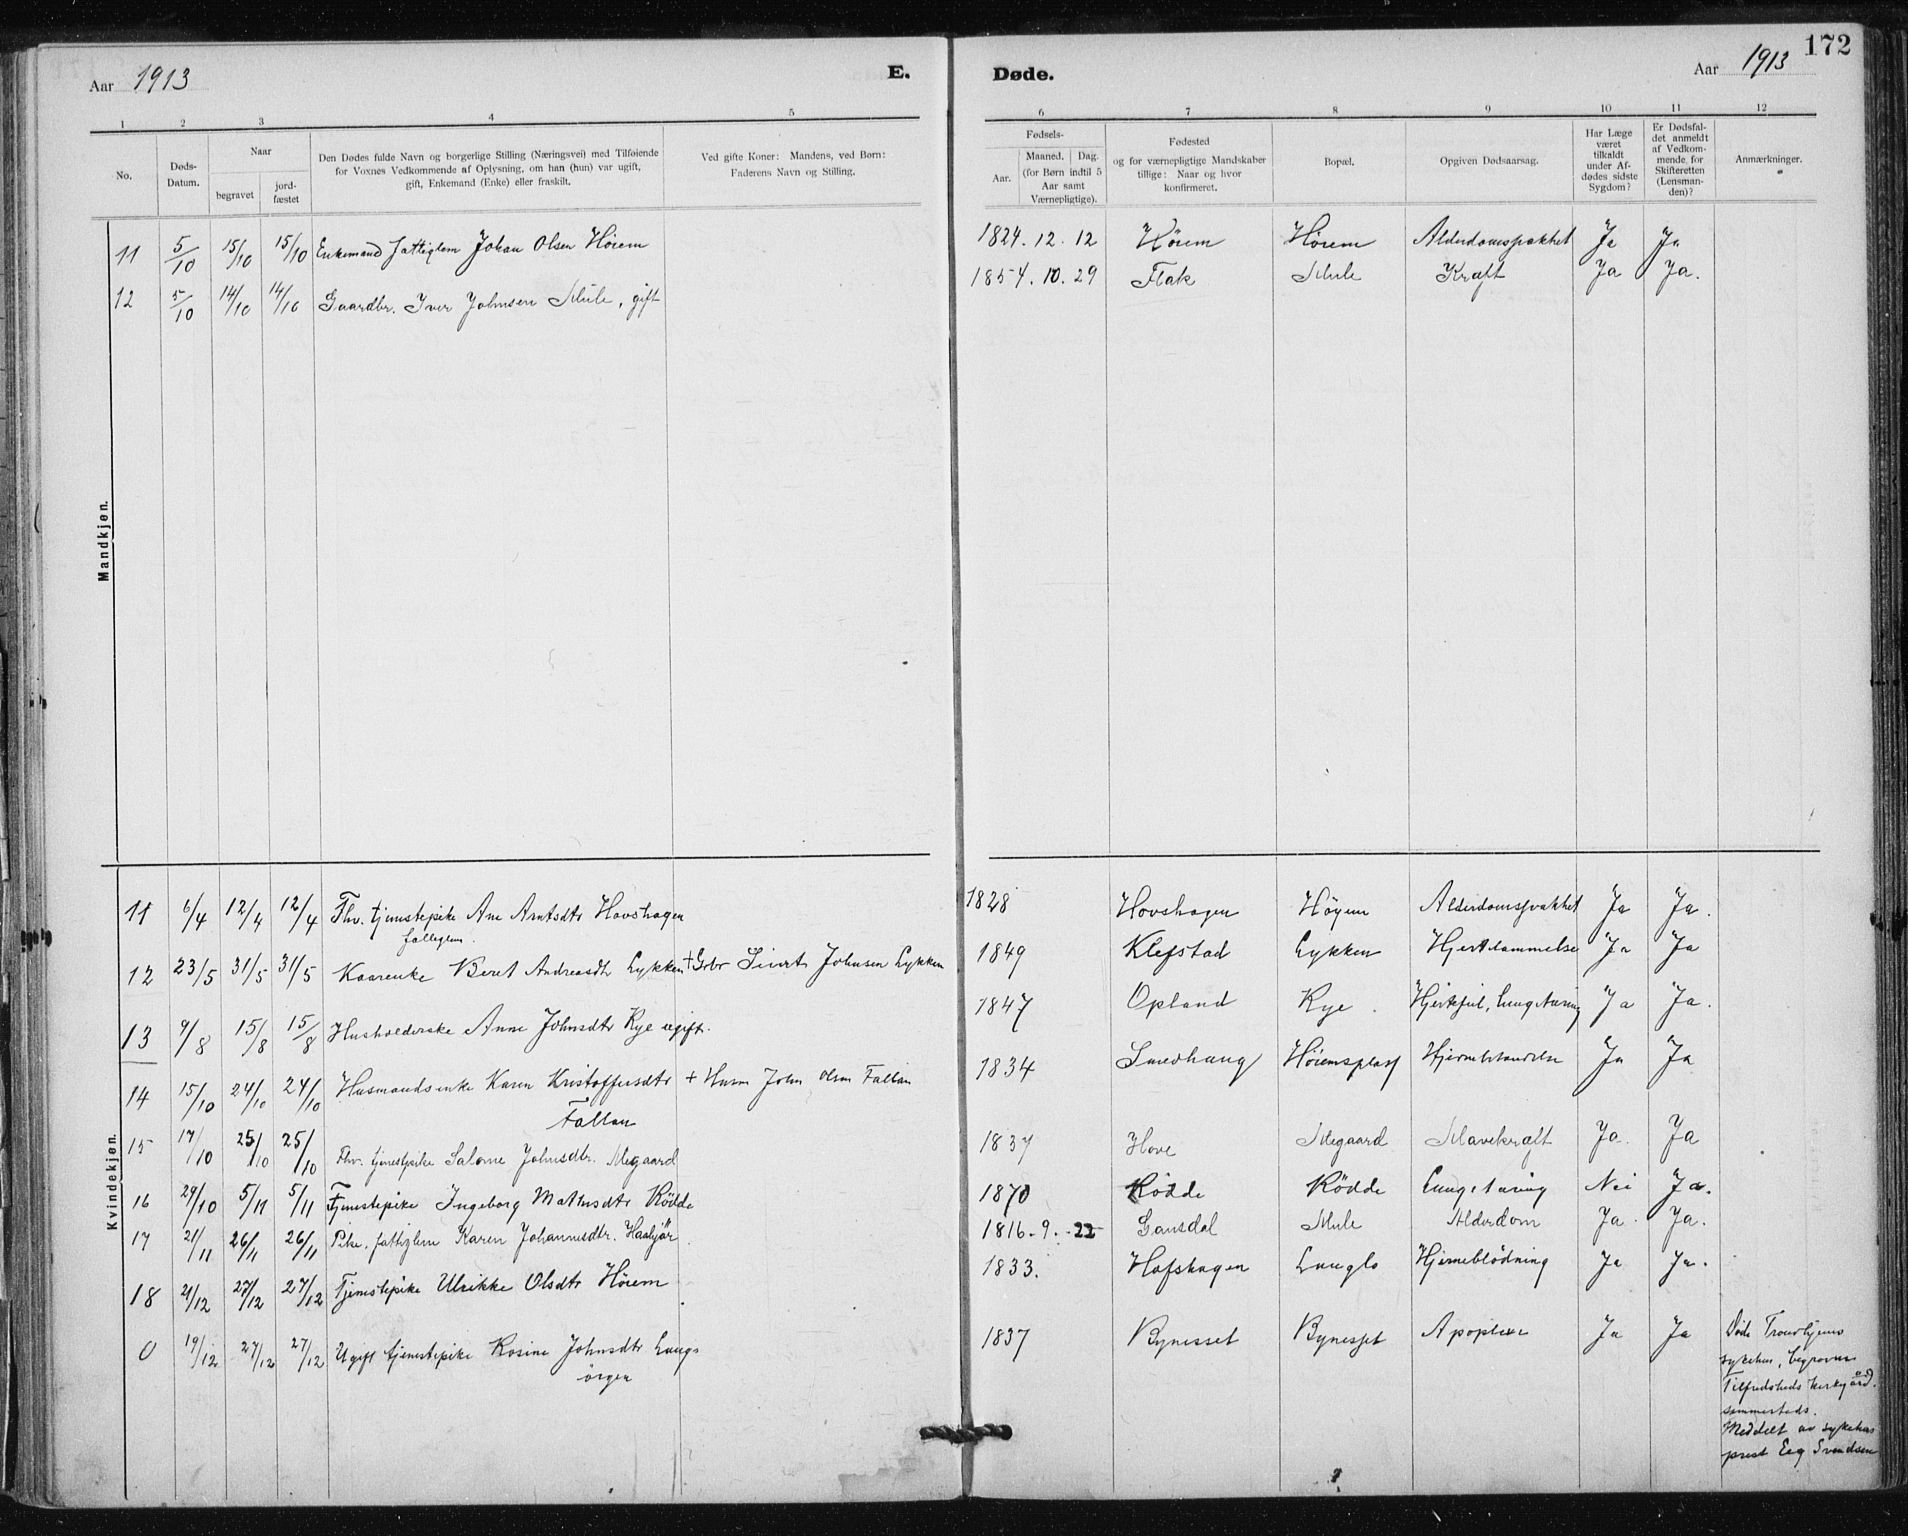 Aar 1913
E.
Døde.
Aar 1913
172
1 2 3 4 5
6 7 8 9 10 11 12
No.
Døds-
Datum.
Naar
begravet
jord-
fæstet
Den Dødes fulde Navn og borgerlige Stilling (Næringsvei) med Tilføiende
for Voxnes Vedkommende af Oplysning, om han (hun) var ugift,
gift, Enkemand (Enke) eller fraskilt.
Ved gifte Koner: Mandens, ved Børn:
Faderens Navn og Stilling.
Fødsels-
Aar.
Maaned. Dag.
(for Børn indtil 5
Aar samt
Værnepligtige).
Fødested
og for værnepligtige Mandskaber
tillige: Naar og hvor
konfirmeret.
Bopæl.
Opgiven Dødsaarsag.
Har Læge
været
tilkaldt
under Af-
dødes sidste
Sygdom?
Er Dødsfal-
det anmeldt
af Vedkom-
mende for
Skifteretten
(Lensman-
den)?
Anmærkninger.
Mandkjøn.
11 5/10 15/10 15/10 Enkemand fattiglem Johan Olsen Høiem 1824. 12. 12 Høiem Høiem Alderdomssvakhet Ja Ja
12 5/10 14/10 14/10 Gaardbr. Iver Johnsen Mule, gift 1854. 10. 29 Flak Mule Kræft Ja Ja.
Kvindekjøn.
11 6/4 12/4 12/4 Fhv. tjenestepike Ane Arntsdtr Hovshagen 1828 Hovshagen Høyem Alderdomssvakhet Ja Ja.
fattiglem.
12 23/5 31/5 31/5 Kaarenke Beret Andreasdtr Lykken + Gbr Sivert Johnsen Lykken 1849 Klefstad Lykken Hjertelammelse Ja Ja
13 9/8 15/8 15/8 Husholderske Anne Johnsdtr Rye ugift. 1847 Opland Rye. Hjertefeil, Lungetæring Ja Ja.
14 15/10 24/10 24/10 Husmandsenke Karen Kristoffersdtr + Husm John Olsen Fallan 1834 Smedhaug Høiemsplass Ja Ja
Fallan
15 17/10 25/10 25/10 Fhv. tjenestepike Salome Johnsdtr. Megaard 1837 Hove Megaard Mavekræft Ja. Ja
16 29/10 5/11 5/11 Tjenestepike Ingeborg Mathisdtr Rödde 1870 Rödde Rödde Lungetæring Nei Ja.
17 21/11 26/11 26/11 Pike, fattiglem Karen Johannesdtr. 1816. 9. 22 Gausdal Mule Alderdom Ja. Ja.
18 21/12 27/12 27/12 Tjenestepike Ulrikke Olsdtr Høiem 1833. Hofshagen Langlo Hjerneblödning Ja Ja.
0 19/12 27/12 27/12 Ugift tjenestepike Rosine Johnsdtr Langs 1837 Bynesset Bynesset Apoplexi Ja Ja Døde Trondhjems
örgen
sykehus, begraven
Tilfredsheds kirkegård.
sammesteds.
Meddelt av sykehus
prest Eeg Svendsen